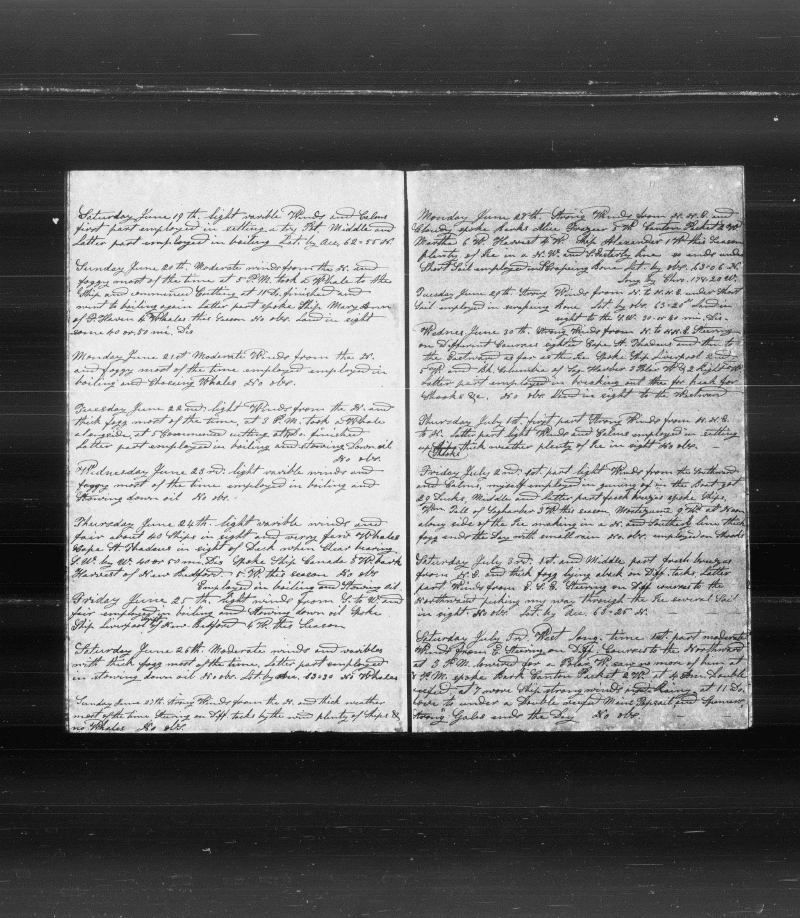 Saturday June 19th. light varible Winds and Calms
first part employed in setting a try Pot Middle and
latter part employed in boiling Lat by Acc. 62=55 N.
Sunday June 20th. Moderate winds from the N. and
foggy most of the time at 5 P.M. took a Whale to the
Ship and commenced Cutting at 11 Do. finished and
went to boiling again latter part spoke Ship Mary Ann
of F. Haven 6 Whales this Season No obs. Land in sight
some 40 or 50 mi. Dis
Monday June 21st Moderate Winds from the N.
and foggy most of the time employed employed in
boiling and Chasing Whales No obs.
Tuesday June 22nd. light Winds from the N. and
thick fog most of time, at 3 P.M. took a Whale
alongside at 5 Commenced cutting at Do. finished
latter part employed in boiling and stowing down oil
No obs.
Wednesday June 23rd. light varible winds and
foggy most of the time employed in boiling and
Stowing down oil No obs.
Thursday June 24th. light varible winds and
fair about 40 Ships in sight and very few Whales
Cape St. Thadeus in sight of Deck when Clear bearing
S.W. by W. 40 or 50 mi. Dis Spoke Ship Canada 3 W. bark
Harvest of New Bedford 5 W. this season No obs
Employed in boiling and Stowing oil
Friday June 25th light winds from S. to W. and
fair employed in boiling and Stowing down oil Spoke
Ship Liverpool 2nd of New Bedford 6 W. this Season
Saturday June 26th Moderate winds and varibles
with thick fogg most of the time, latter part employed
in stowing down oil No obs. Lat by Acc 63=30 No Whales
Sunday June 27th Strong Winds from the N. and thick weather
most of the time Steering on Diff tacks by the wind plenty of Ships &
no Whales No obs.
Monday June 28th Strong Winds from N.N.E. and
Cloudy spoke barks Alice Frazier 5 W Canton Packet 2 W
Martha 6 W. Harvest 4 W. Ship Alexander 1 W this Season
plenty of Ice in a N.W. and S. Easterly line so ends under
Short Sail employed in Scraping bone Lat by obr. 63=06 N.
Long by Chro. 178=20 W.
Tuesday June 29th Strong Winds from N. to N.N.E. under Short
Sail employed in scraping bone Lat by obr 63=25 Land in
sight to the S.W. 30 or 40 mi. Dis.
Wednes June 30th Strong Winds from N. to N.N.E. Steering
on Different Courses sighted Cape St. Thadeus and then to
the Eastward as far as the Ice Spoke Ship Liverpool 2nd
5 W. and bk Columbia of Sag Harbor 3 Polar W & 2 Right W
latter part employed in breaking out the for peak for
Shooks &c. No obs. Land in sight to the Westward
Thursday July 1st. first part Strong Winds from N.N.E.
to N. latter part light Winds and Calms employed in setting
up Shooks thick weather plenty of Ice in sight No obs.
Friday July 2nd. 1st. part light Winds from the Southward
and Calms, myself employed in gunning of in the boat got
29 Ducks, Middle and latter part fresh breezes spoke Ships,
Wm Tell of Sagharbor 3 W this season Montezuma 9 W at Noon
along side of the Ice making in a N. and Southerly line thick
fogg ends the Day with small rain No obs. employed on Shooks
Saturday July 3rd. 1st. and Middle part fresh breezes
from N.E. and thick fogg lying aback on Diff. tacks, Latter
part Winds from E.S.E. Steering on Diff courses to the
Northward picking my way through the Ice several Sail
in sight No obr. Lat by Acc. 63=25 N.
Saturday July 3rd. West long. time 1st. part moderate
Winds from E. Steering on Diff. Courses to the Northward
at 3 P.M. lowered for a Polar W. saw no more of him at
P.M. spoke Bark Canton Packet 2 W. at 4 Do. Double
reefed at 7 wore Ship strong winds and Rainy at 11 Do.
hove to under a Double reefed Main Topsail and Spencer
Strong Gales ends the Day No obs.